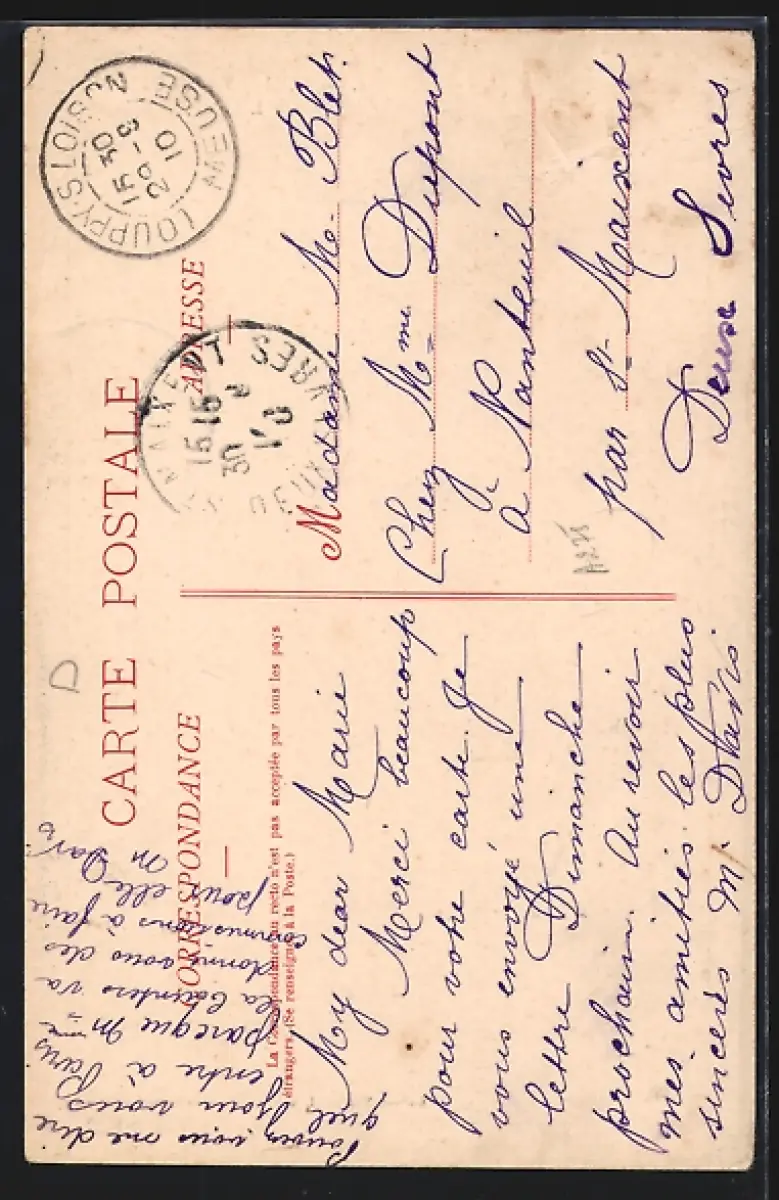 CARTE POSTALE
CORRESPONDANCE
ADRESSE
La Correspondance au recto n'est pas acceptée par tous les pays
étrangers. (Se renseigner à la Poste.)
My dear Marie
Merci beaucoup
pour votre carte. Je
vous envoyé une
lettre Dimanche
prochain. Au revoir
mes amitiés les plus
sincères M. Davis
Madame M. Blet.
Chez Mme Dupont
à Nanteuil
par St Maixent
Deux Sevres
Pouvez vous me dire
quel jour vous
entre à Paris
parceque Mme
la va
donner vous des
commissions à faire
pour elle
M Davis
LOUPPY-S-LOISON
MEUSE
15 30
29 - 9
10
ST MAIXENT
DEUX SEVRES
15 15
30
10
D